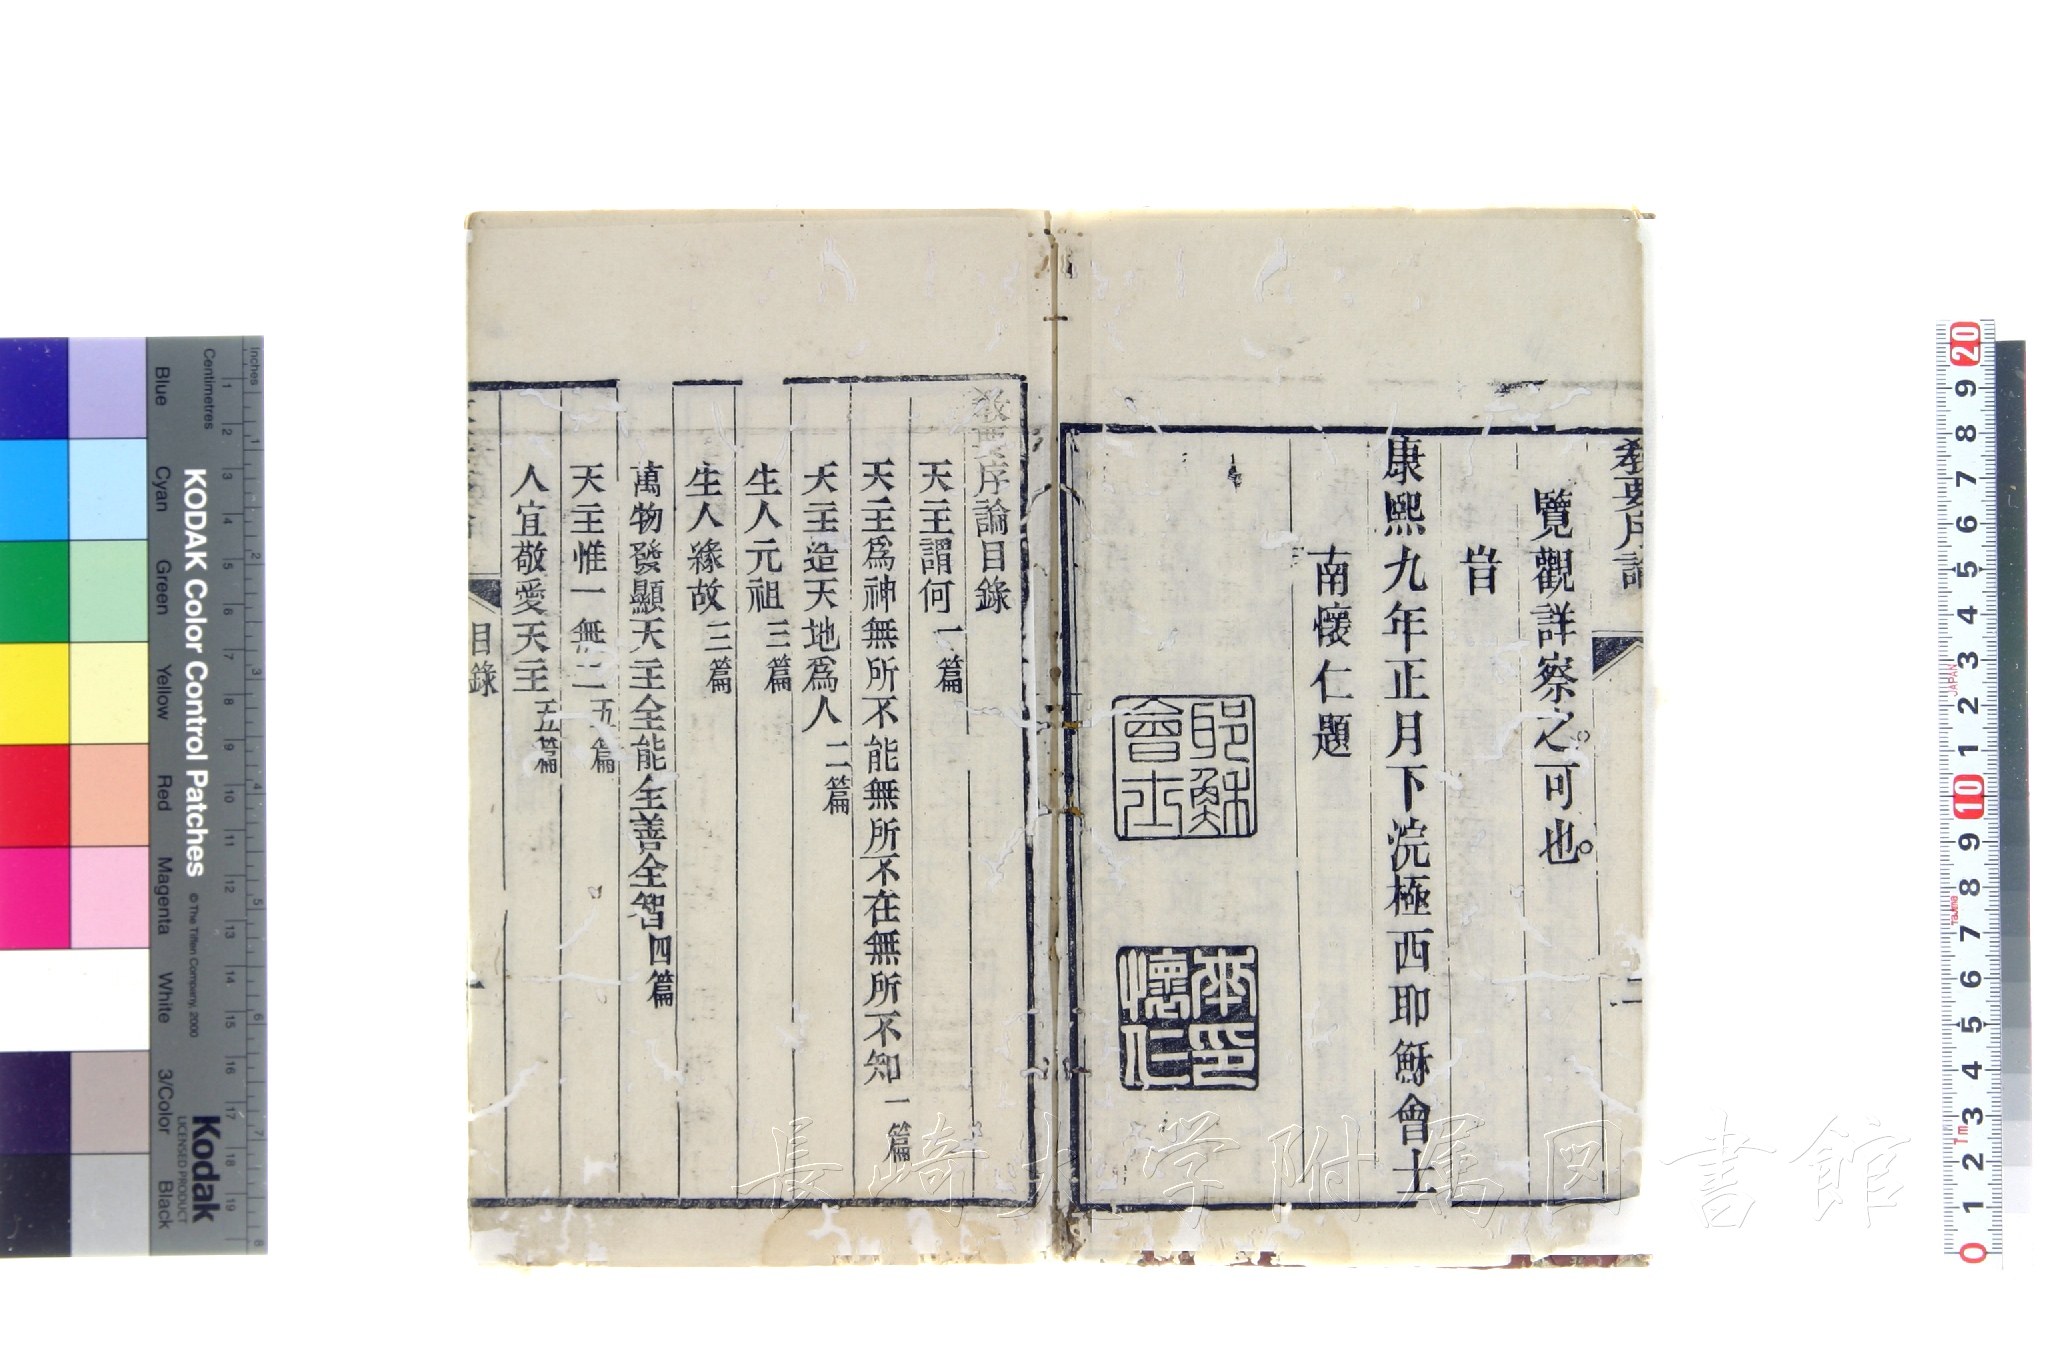 教要序論
二
覽觀詳察之。可也。
旹
康熙九年正月下浣極西耶穌會士
南懷仁題
耶穌
會士
懷仁
教要序論目錄
天主謂何 一篇
天主爲神無所不能無所不在無所不知 一篇
天主造天地爲人 二篇
生人元祖 三篇
生人緣故 三篇
萬物發顯天主全能全善全智 四篇
天主惟一無二 五篇
人宜敬愛天主 五篇
目錄
一
長崎大学附属図書館
Inches
Centimetres
KODAK Color Control Patches
© The Tiffen Company, 2000
Blue
Cyan
Green
Yellow
Red
Magenta
White
3/Color
Black
Kodak
LICENSED PRODUCT
1 2 3 4 5 6 7 8 9 10 11 12 13 14 15 16 17 18 19
1 2 3 4 5 6 7 8
20 9 8 7 6 5 4 3 2 1 10 9 8 7 6 5 4 3 2 1 0
JAPAN
Tajima